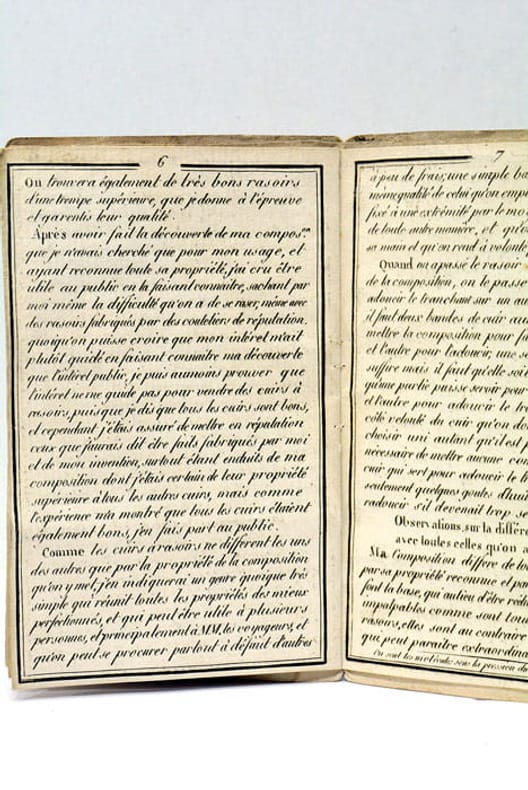 6
On trouvera également de très bons rasoirs
d'une trempe supérieure, que je donne à l'épreuve
et garentis leur qualité.
Après avoir fait la découverte de ma compos.on
que je n'avais cherché que pour mon usage, et
ayant reconnue toute sa propriété, j'ai cru être
utile au public en la faisant connaître, sachant par
moi même la difficulté qu'on a de se raser, même avec
des rasoirs fabriqués par des couteliers de réputation.
quoiqu'on puisse croire que mon intéret m'ait
plutôt guidé en faisant connaître ma découverte
que l'intéret public, je puis aumoins prouver que
l'intéret ne me guide pas pour vendre des cuirs à
rasoirs, puisque je dis que tous les cuirs sont bons,
et cependant j'étais assuré de mettre en réputation
ceux que j'aurais dit être faits fabriqués par moi
et de mon invention, surtout étant enduits de ma
composition dont j'étais certain de leur propriété
supérieure à tous les autres cuirs, mais comme
l'expérience m'a montré que tous les cuirs étaient
également bons, j'en fais part au public.
Comme les cuirs à rasoirs ne différent les uns
des autres que par la propriété de la composition
qu'on y met, j'en indiquerai un genre quoique très
simple qui réunit toutes les propriétés des mieux
perfectionnés, et qui peut être utile à plusieurs
personnes, et principalement à MM. les voyageurs, et
qu'on peut se procurer partout à défaut d'autres
7
à peu de frais; une simple ba
même qualité de celui qu'on emp
fixé à une extrémité par le mo
de toute autre manière, et qu'o
sa main et qu'on rend à volonté
Quand on a passé le rasoir
de la composition, on le passe
adoucir le tranchant sur un au
il faut deux bandes de cuir au
mettre la composition pour f
et l'autre pour l'adoucir, une s
suffire mais il faut qu'elle soit
qu'une partie puisse servir pou
et l'autre pour adoucir le t
côté velouté du cuir qu'on do
choisir uni autant qu'il est p
nécessaire de mettre aucune c
cuir qui sert pour adoucir le t
seulement quelques goutes d'hui
radoucir s'il devenait trop se
Observations, sur la différe
avec toutes celles qu'on a
Ma Composition diffère de to
par sa propriété reconnue et pa
font la base, qui au lieu d'être réd
impalpables comme sont tou
rasoirs, elles sont au contraire
qui peut paraître extraordina